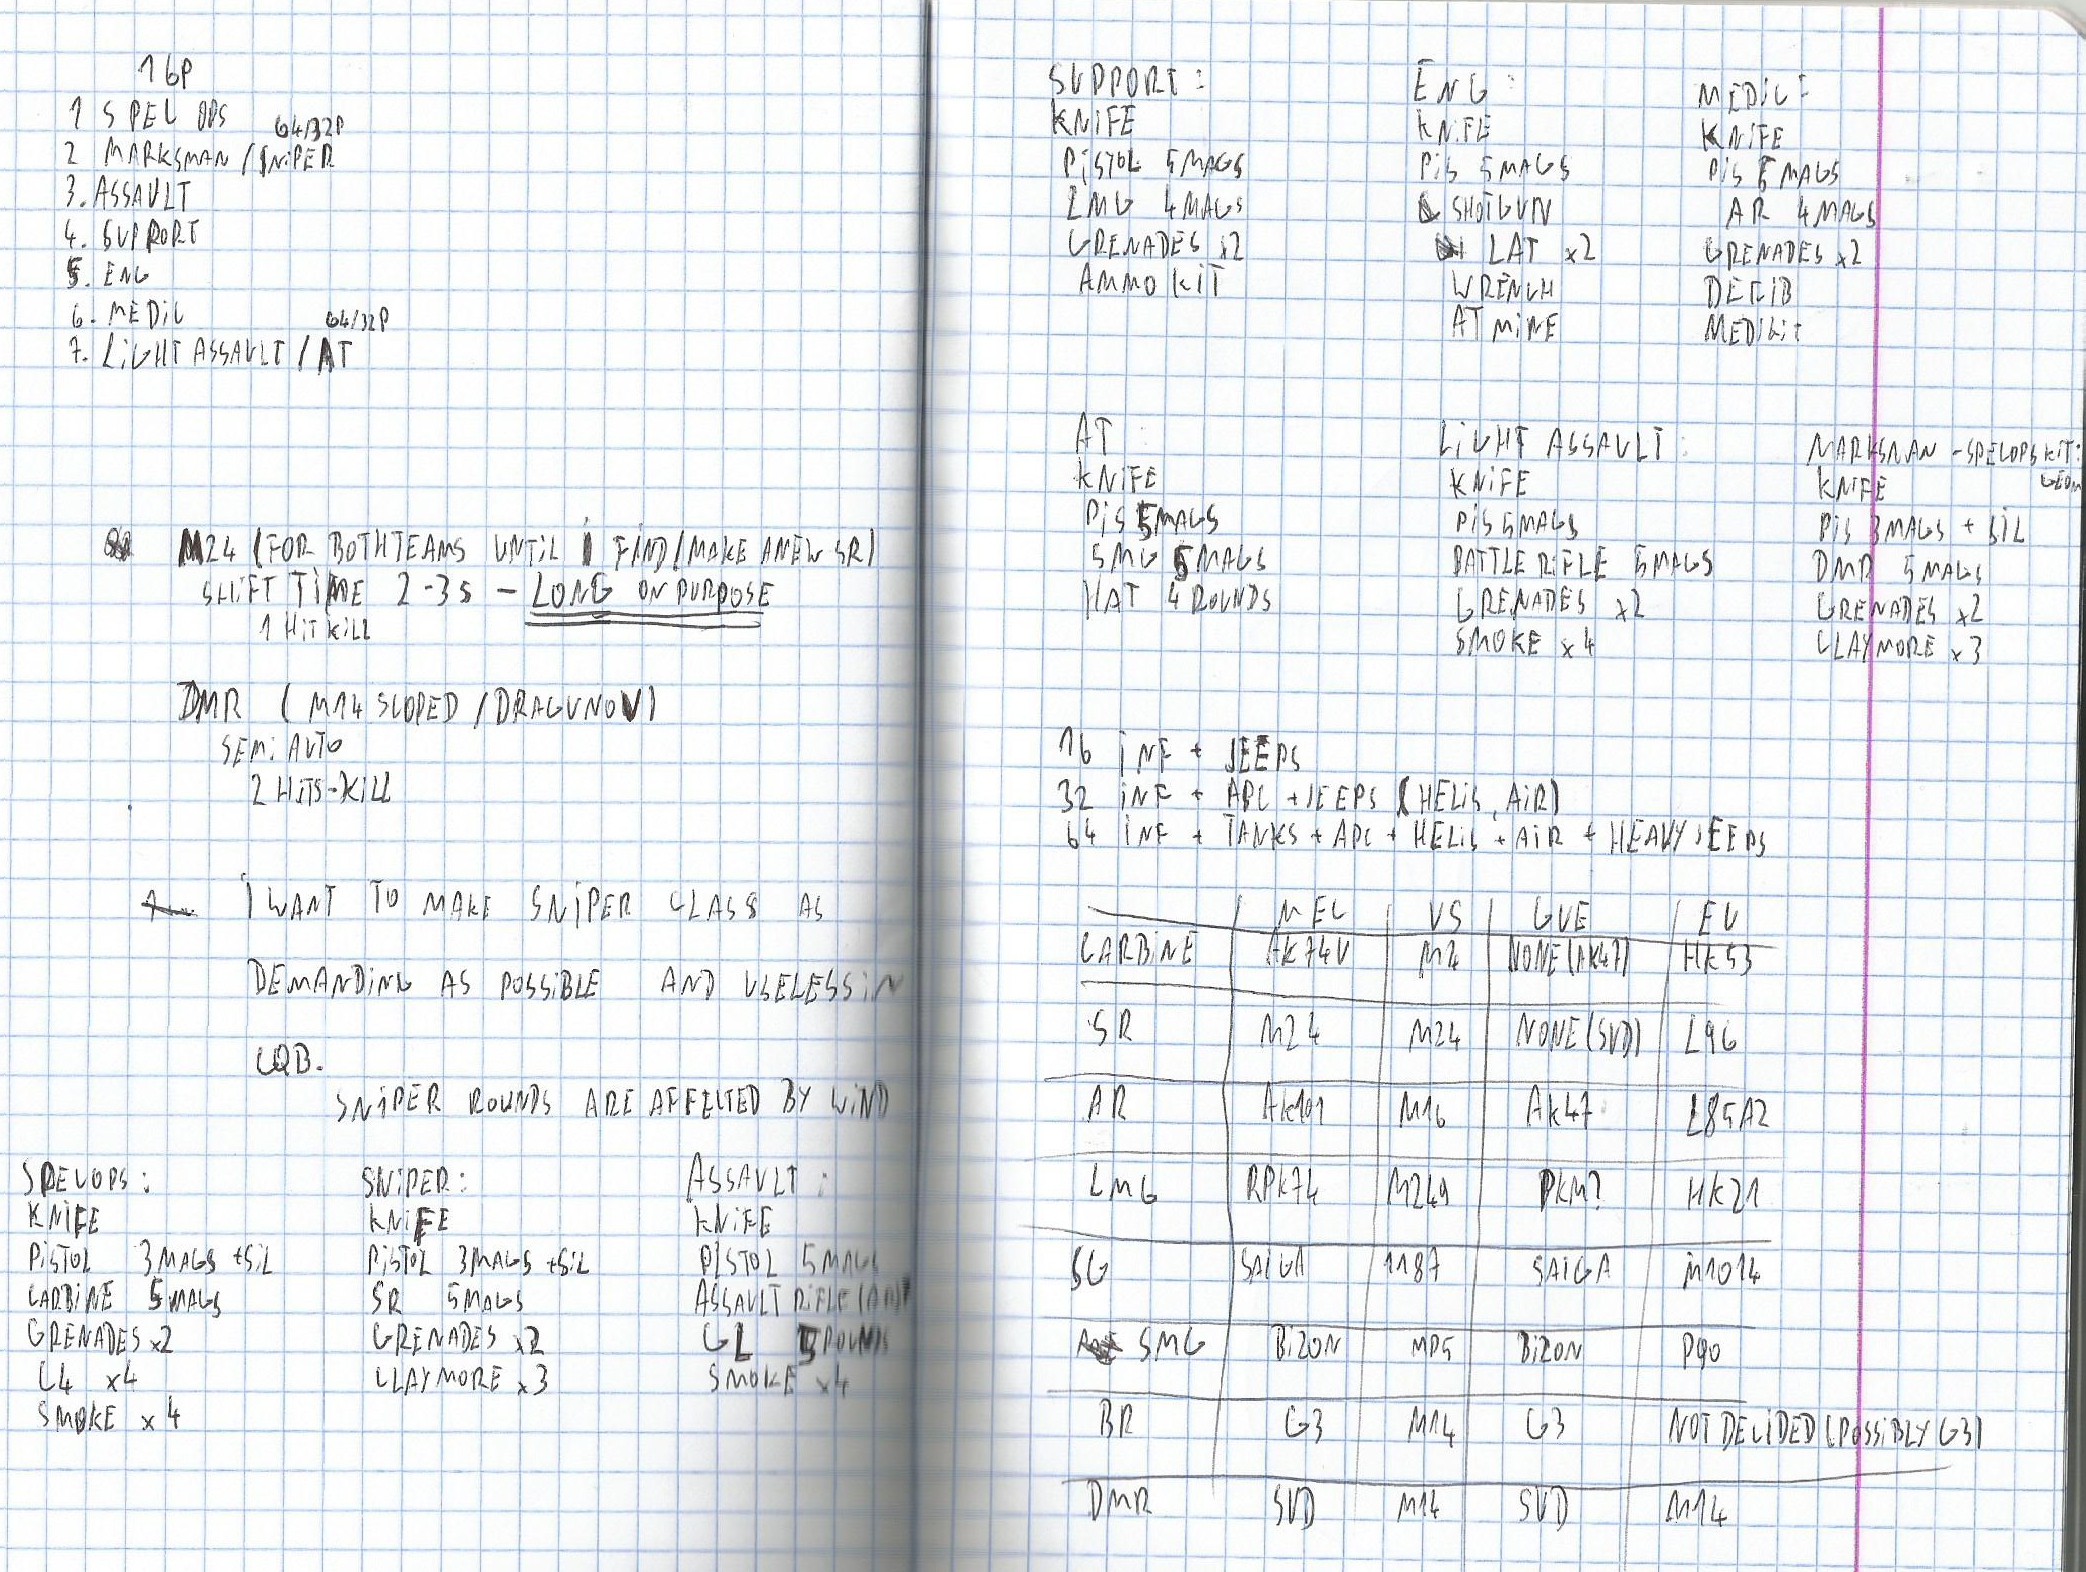 16P
1 SPEC OPS
64/32P
2 MARKSMAN / SNIPER
3. ASSAULT
4. SUPPORT
5. ENG
6. MEDIC
64/32P
7. LIGHT ASSAULT / AT
M24 (FOR BOTH TEAMS UNTIL I FIND/MAKE A NEW SR)
SHIFT TIME 2-3S - LONG ON PURPOSE
1 HIT KILL
DMR (M14 SCOPED / DRAGUNOV)
SEMI AUTO
2 HITS-KILL
I WANT TO MAKE SNIPER CLASS AS
DEMANDING AS POSSIBLE AND USELESS IN
CQB.
SNIPER ROUNDS ARE AFFECTED BY WIND
SPECOPS:
KNIFE
PISTOL 3 MAGS + SIL
CARBINE 5 MAGS
GRENADES x2
C4 x4
SMOKE x4
SNIPER:
KNIFE
PISTOL 3 MAGS + SIL
SR 5 MAGS
GRENADES x2
CLAYMORE x3
ASSAULT:
KNIFE
PISTOL 5 MAGS
ASSAULT RIFLE (AR)
GL 5 ROUNDS
SMOKE x4
SUPPORT:
KNIFE
PISTOL 5 MAGS
LMG 4 MAGS
GRENADES x2
AMMO KIT
ENG:
KNIFE
PIS 5 MAGS
SHOTGUN
LAT x2
WRENCH
AT MINE
MEDIC:
KNIFE
PIS 5 MAGS
AR 4 MAGS
GRENADES x2
DEFIB
MEDIKIT
AT:
KNIFE
PIS 5 MAGS
SMG 5 MAGS
HAT 4 ROUNDS
LIGHT ASSAULT:
KNIFE
PIS 5 MAGS
BATTLE RIFLE 5 MAGS
GRENADES x2
SMOKE x4
MARKSMAN - SPECOPS KIT:
KNIFE
PIS 3 MAGS + SIL
DMR 5 MAGS
GRENADES x2
CLAYMORE x3
16 INF + JEEPS
32 INF + APC + JEEPS (HELIS, AIR)
64 INF + TANKS + APC + HELIS + AIR + HEAVY JEEPS
MEC US GUE EU
CARBINE AK74U M4 NONE (AK47) HK53
SR M24 M24 NONE (SVD) L96
AR AK101 M16 AK47 L85A2
LMG RPK74 M249 PKM? HK21
SG SAIGA 1187 SAIGA M1014
SMG BIZON MP5 BIZON P90
BR G3 M14 G3 NOT DECIDED (POSSIBLY G3)
DMR SVD M14 SVD M14